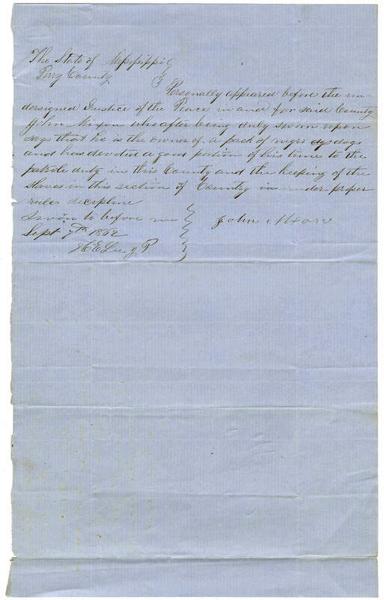 The State of Mississippi
Perry County
Personally appeared before the un-
dersigned Justice of the Peace in and for said County
John who after being duly sworn upon
says that he is the owner of a pack of negro dogs
and has devoted a good portion of his time to the
patrole duty in this County and the keeping of the
slaves in this section of County in under proper
rules decipline
Sworn to before me
John
Sept 7th 1862
H E Lee J P